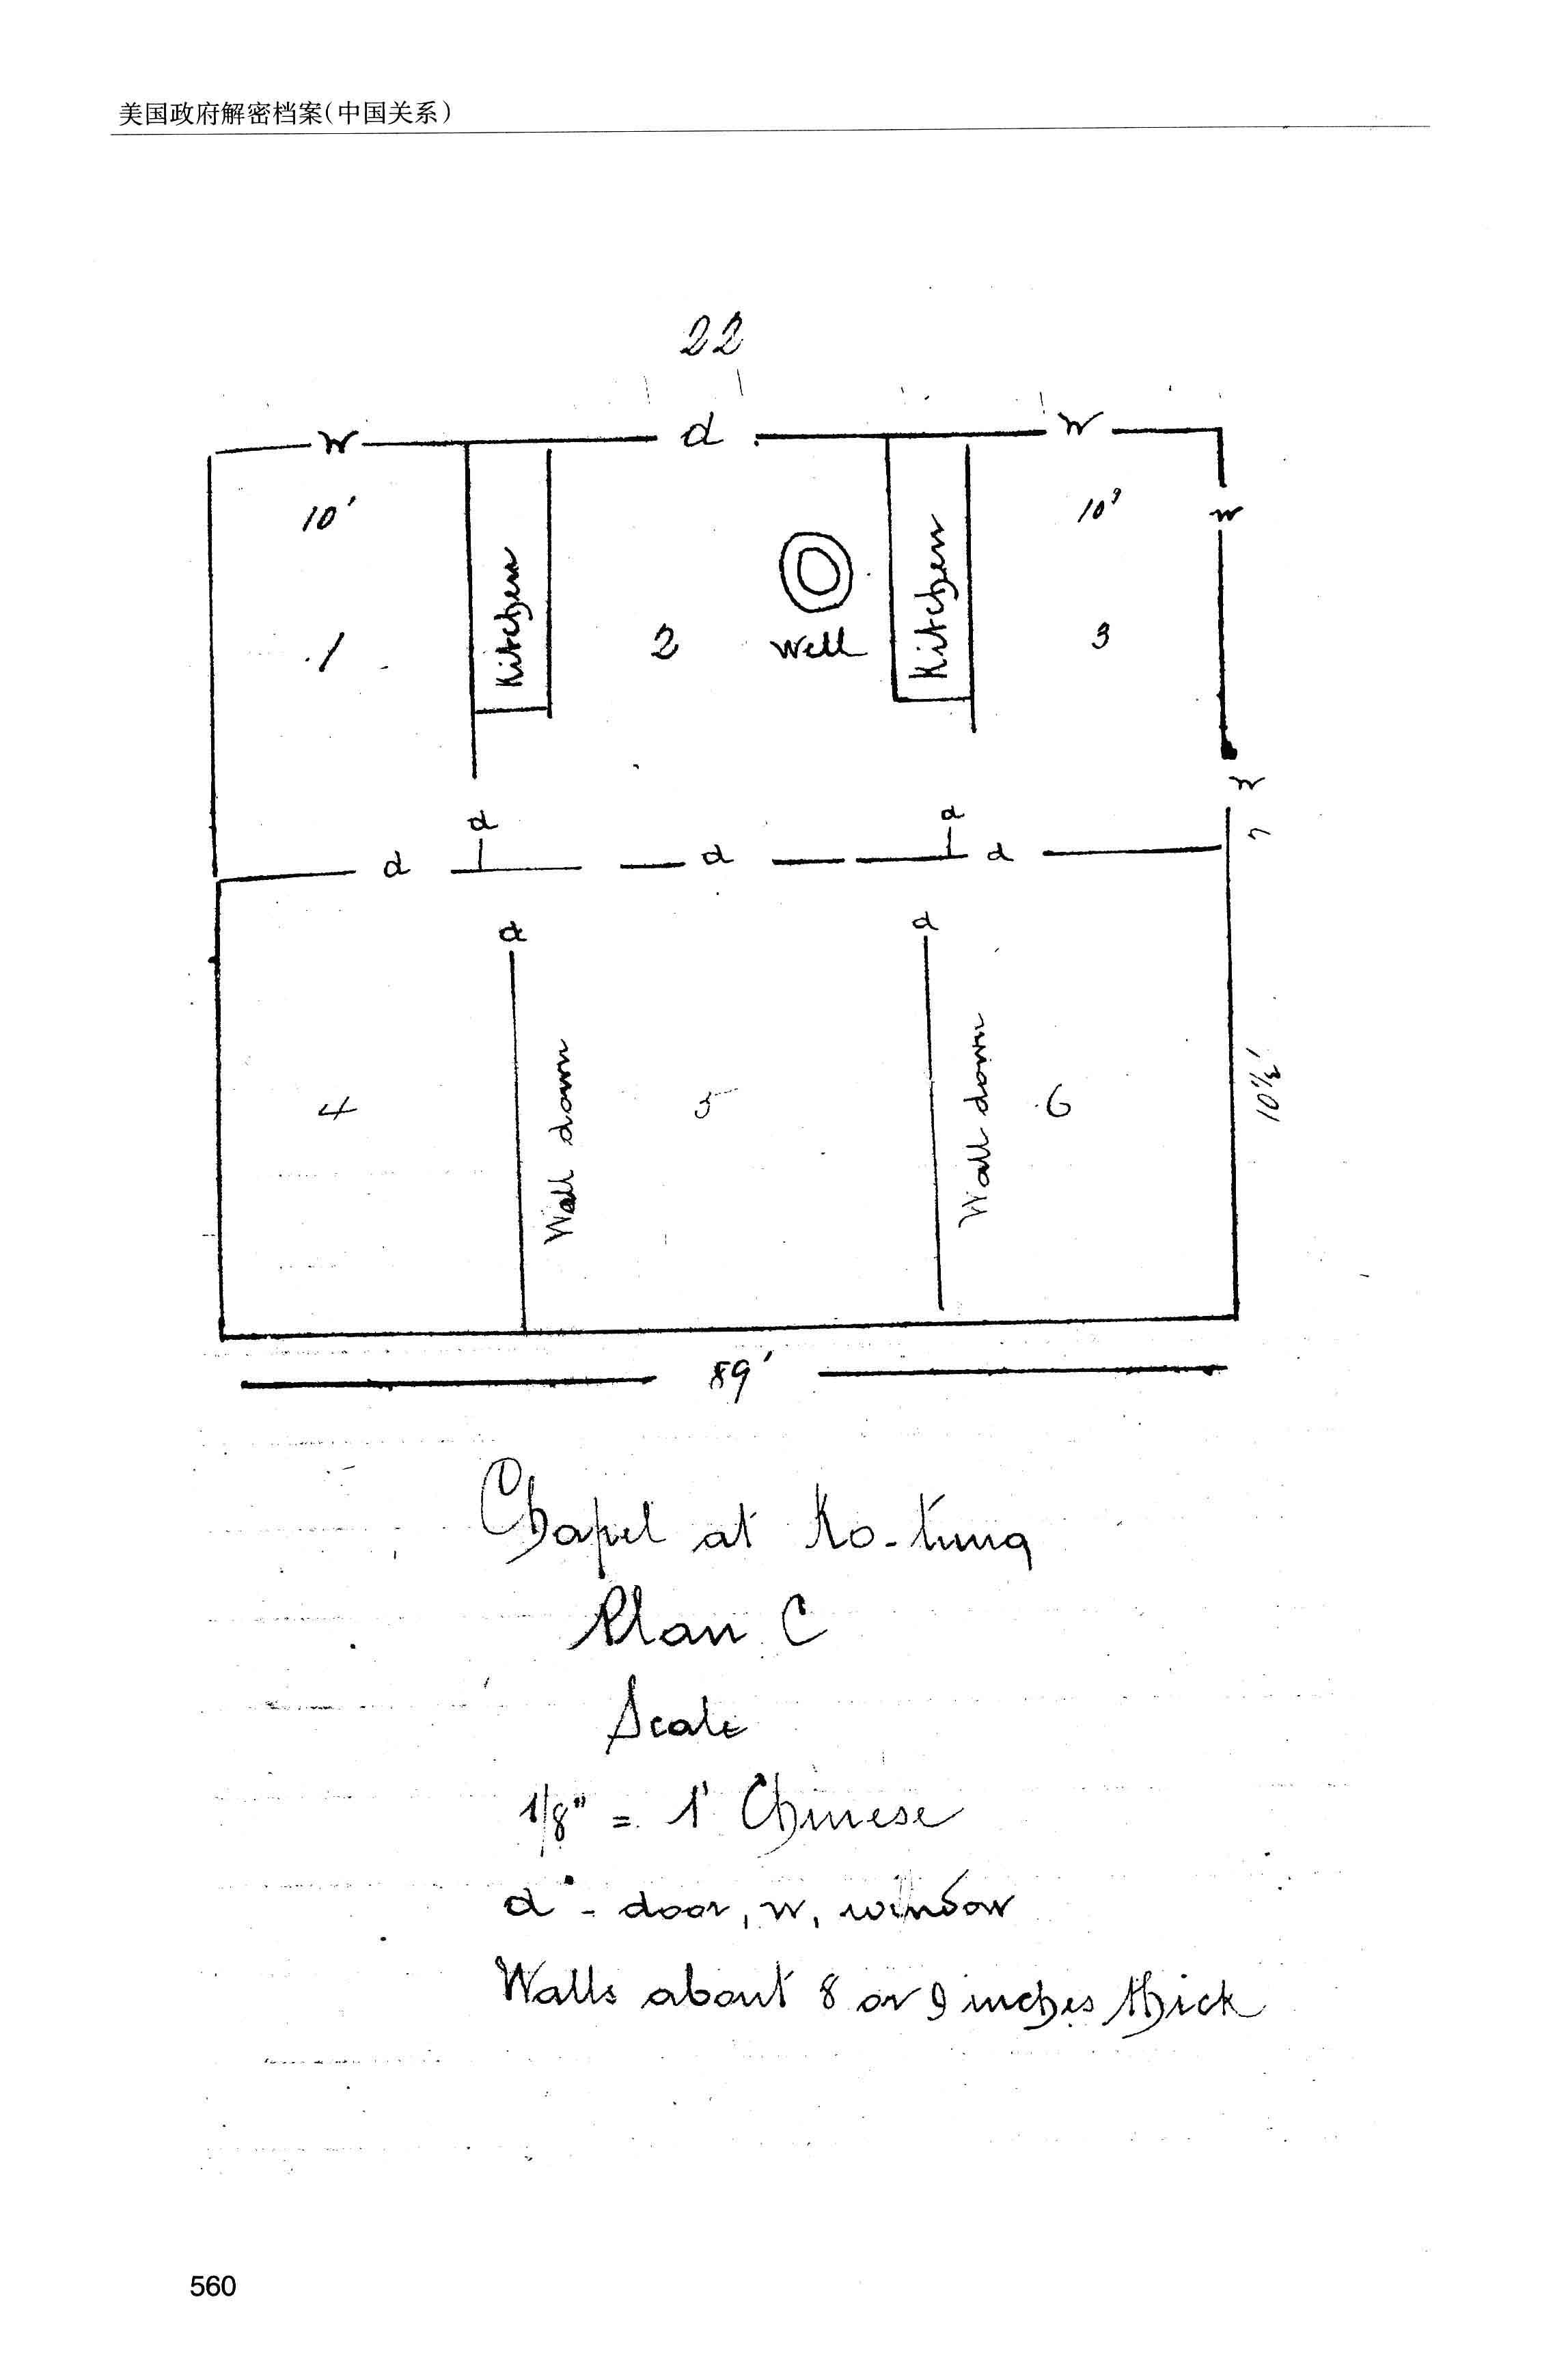 美国政府解密档案(中国关系)
22
W d W
10' 10' w
Kitchen Kitchen
1 2 Well 3
w
d d 7
d d d
d d
Wall down Wall down
4 5 6 10½'
89'
Chapel at Ko-tung
Plan C
Scale
1/8" = 1' Chinese
d - door, w, window
Walls about 8 or 9 inches thick
560